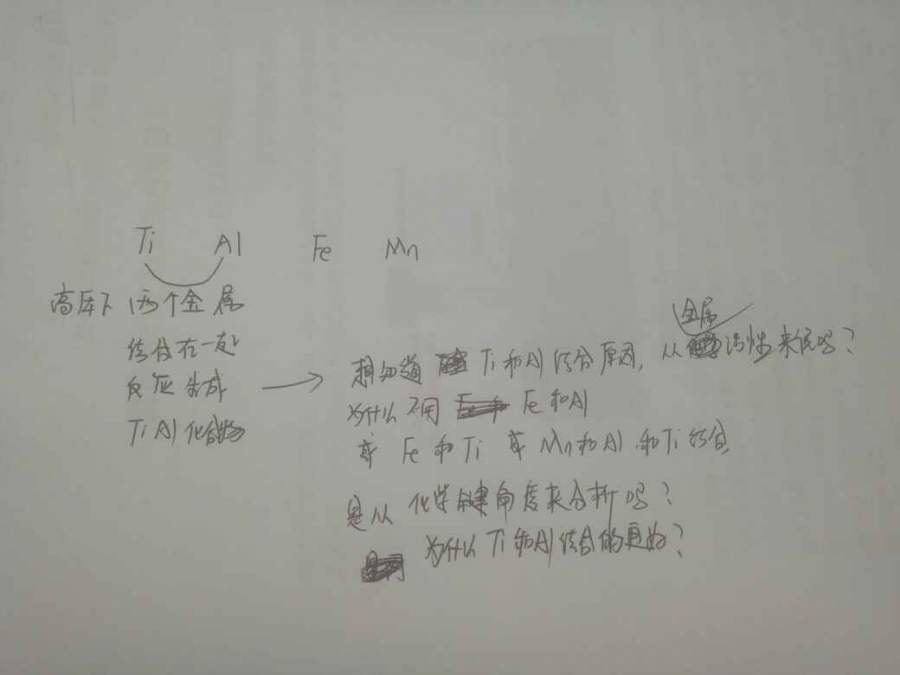 Ti Al Fe Mn
高压下 两个金属
结合在一起
反应生成
Ti Al 化合物
想知道 Ti和Al结合原因, 从金属活性来说吗?
为什么不用 Fe和Al
或 Fe和Ti 或 Mn和Al 和Ti结合
是从 化学键角度来分析吗?
为什么 Ti和Al结合的更好?